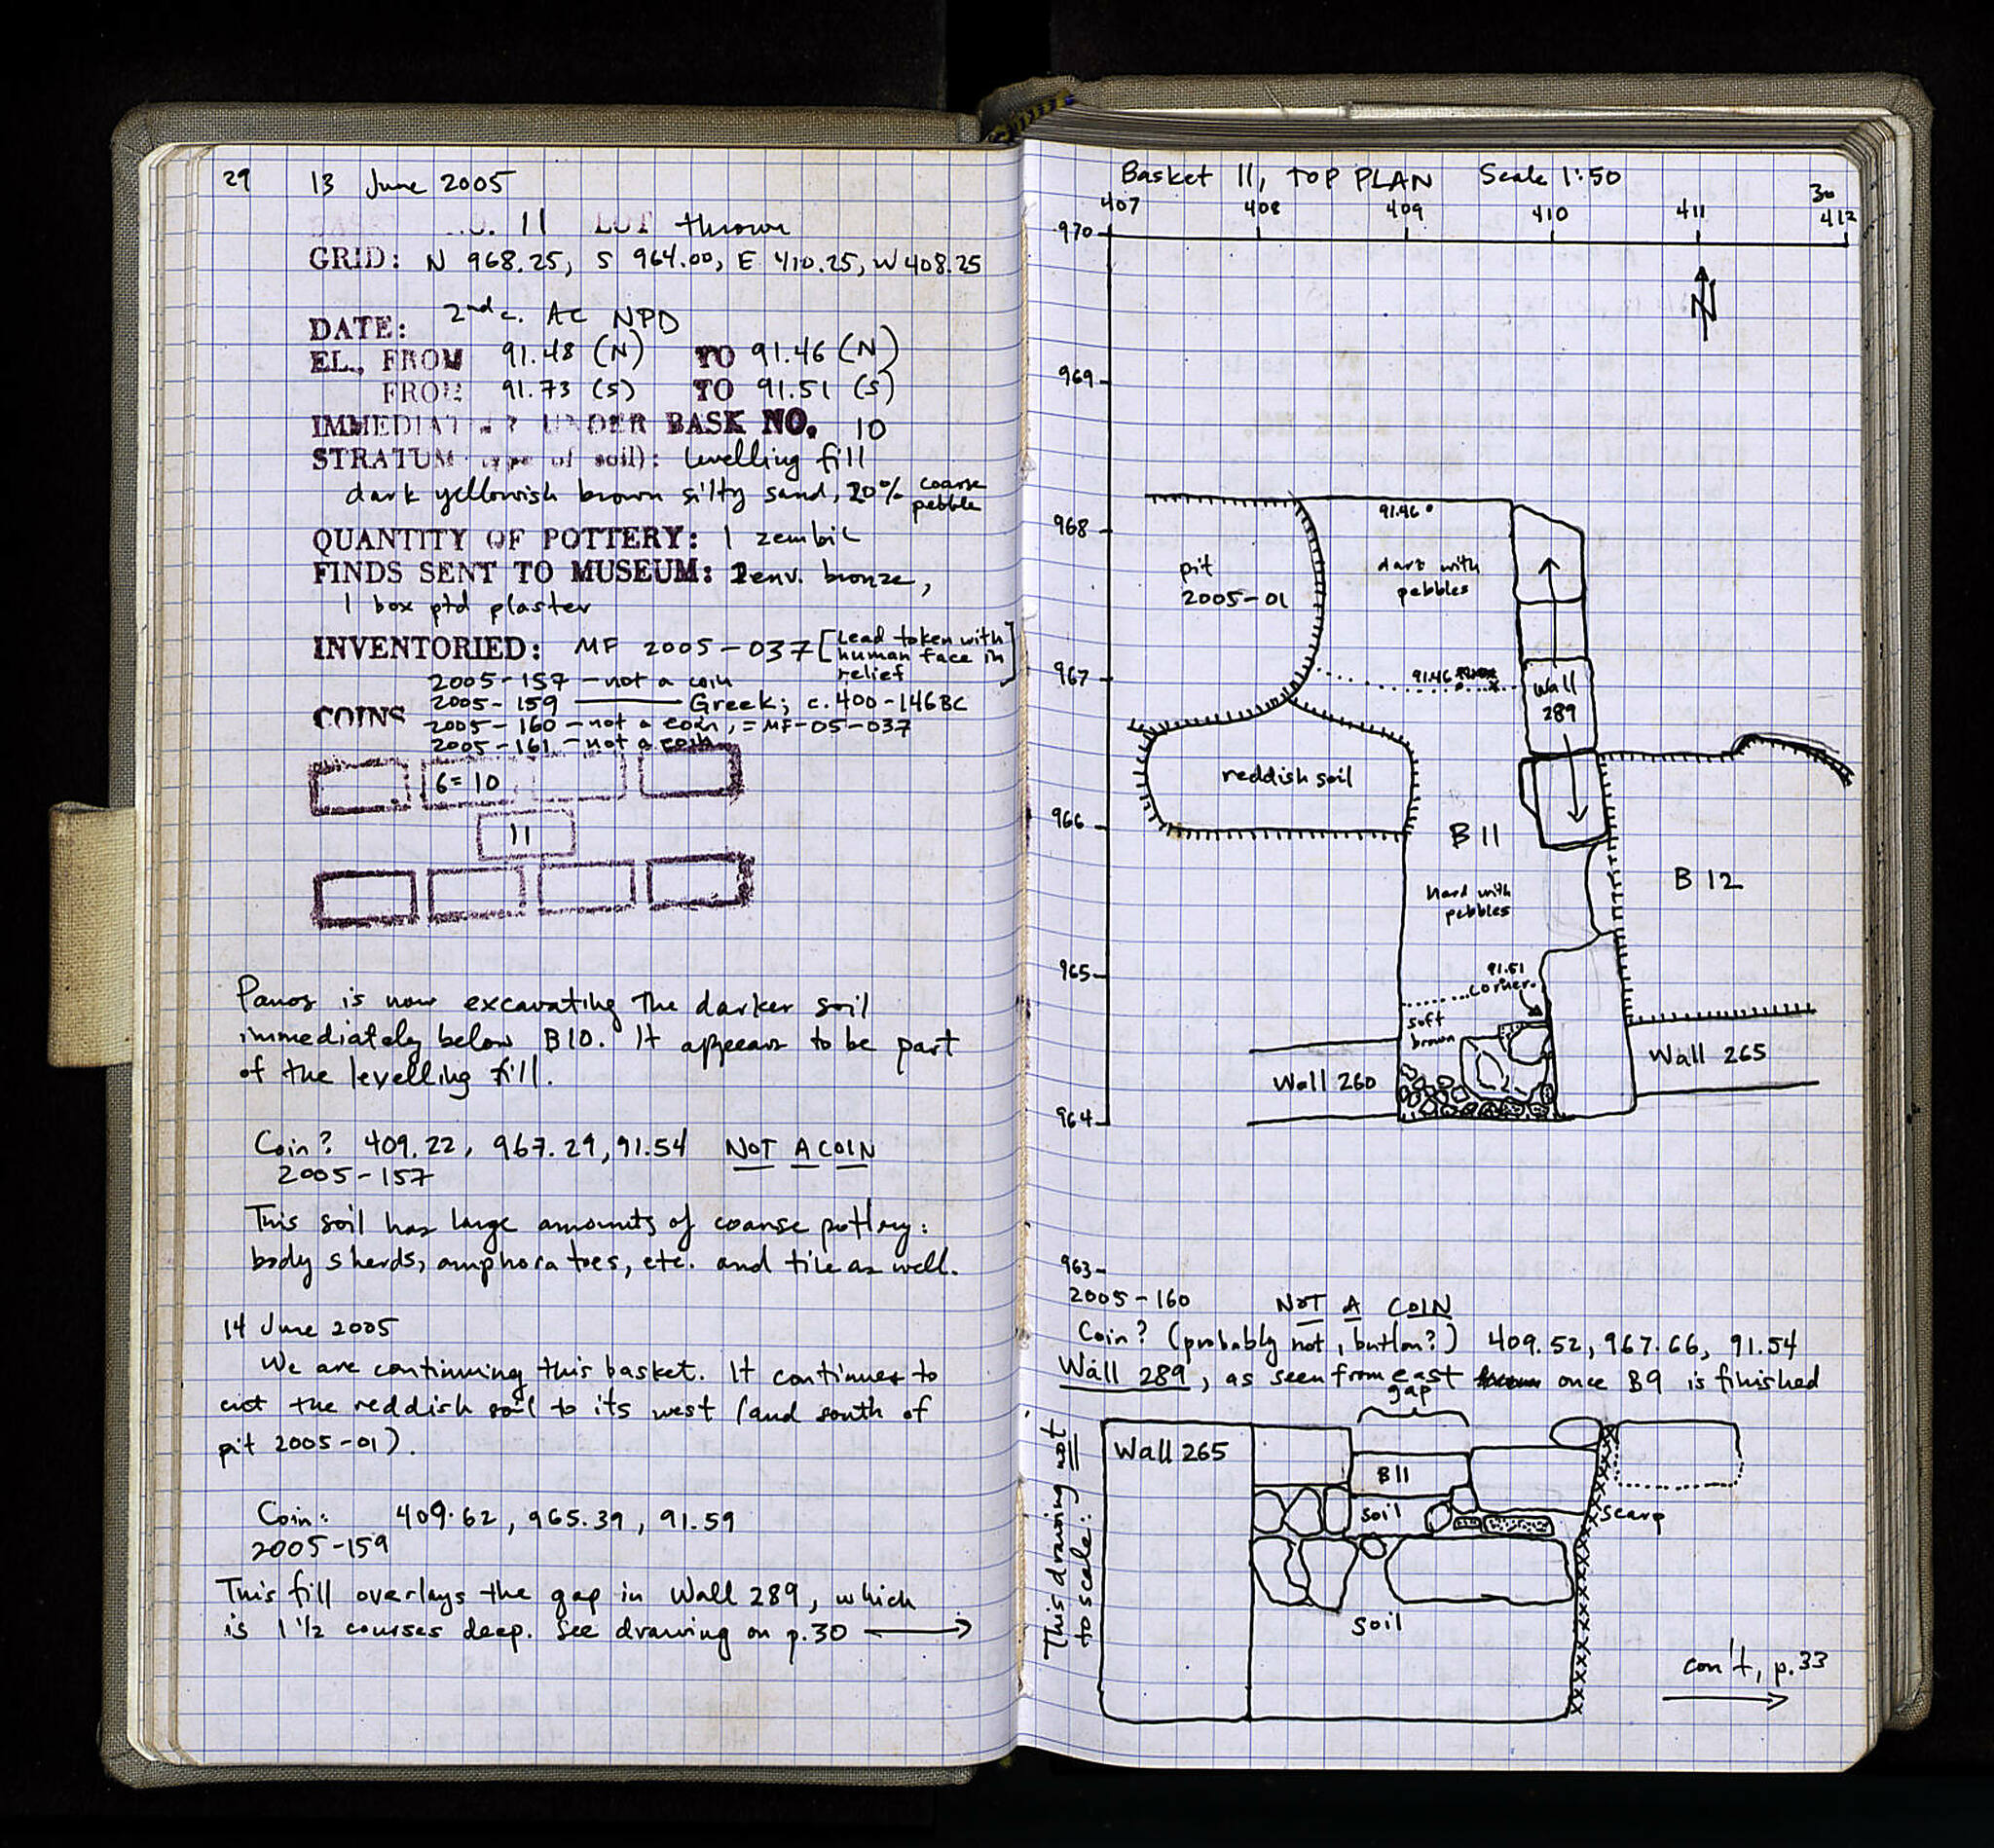 29 13 June 2005
BASKET NO. 11 LOT thrown
GRID: N 968.25, S 964.00, E 410.25, W 408.25
DATE: 2nd c. AC NPD
EL., FROM 91.48 (N) TO 91.46 (N)
FROM 91.73 (S) TO 91.51 (S)
IMMEDIATELY UNDER BASK NO. 10
STRATUM (type of soil): levelling fill
dark yellowish brown silty sand, 20% coarse
pebble
QUANTITY OF POTTERY: 1 zembil
FINDS SENT TO MUSEUM: 2 env. bronze,
1 box ptd plaster
INVENTORIED: MF 2005-037 [Lead token with
human face in
relief]
2005-157 - not a coin
COINS 2005-159 — Greek; c. 400-146 BC
2005-160 - not a coin, = MF-05-037
2005-161 - not a coin
6=10
11
Panos is now excavating the darker soil
immediately below B10. It appears to be part
of the levelling fill.
Coin? 409.22, 967.29, 91.54 NOT A COIN
2005-157
This soil has large amounts of coarse pottery:
body sherds, amphora toes, etc. and tile as well.
14 June 2005
We are continuing this basket. It continues to
cut the reddish soil to its west (and south of
pit 2005-01).
Coin: 409.62, 965.39, 91.59
2005-159
This fill overlays the gap in Wall 289, which
is 1 1/2 courses deep. See drawing on p.30 →
Basket 11, TOP PLAN Scale 1:50
30
407 408 409 410 411 412
970
N
969
968
91.46
pit
2005-01
dark with
pebbles
967
91.46
Wall
289
reddish soil
966
B 11
B 12
hard with
pebbles
965
91.51
corner
soft
brown
Wall 265
Wall 260
964
963
2005-160 NOT A COIN
Coin? (probably not, button?) 409.52, 967.66, 91.54
Wall 289, as seen from east once B9 is finished
gap
This drawing not
to scale:
Wall 265
B11
soil
scarp
soil
con't, p.33